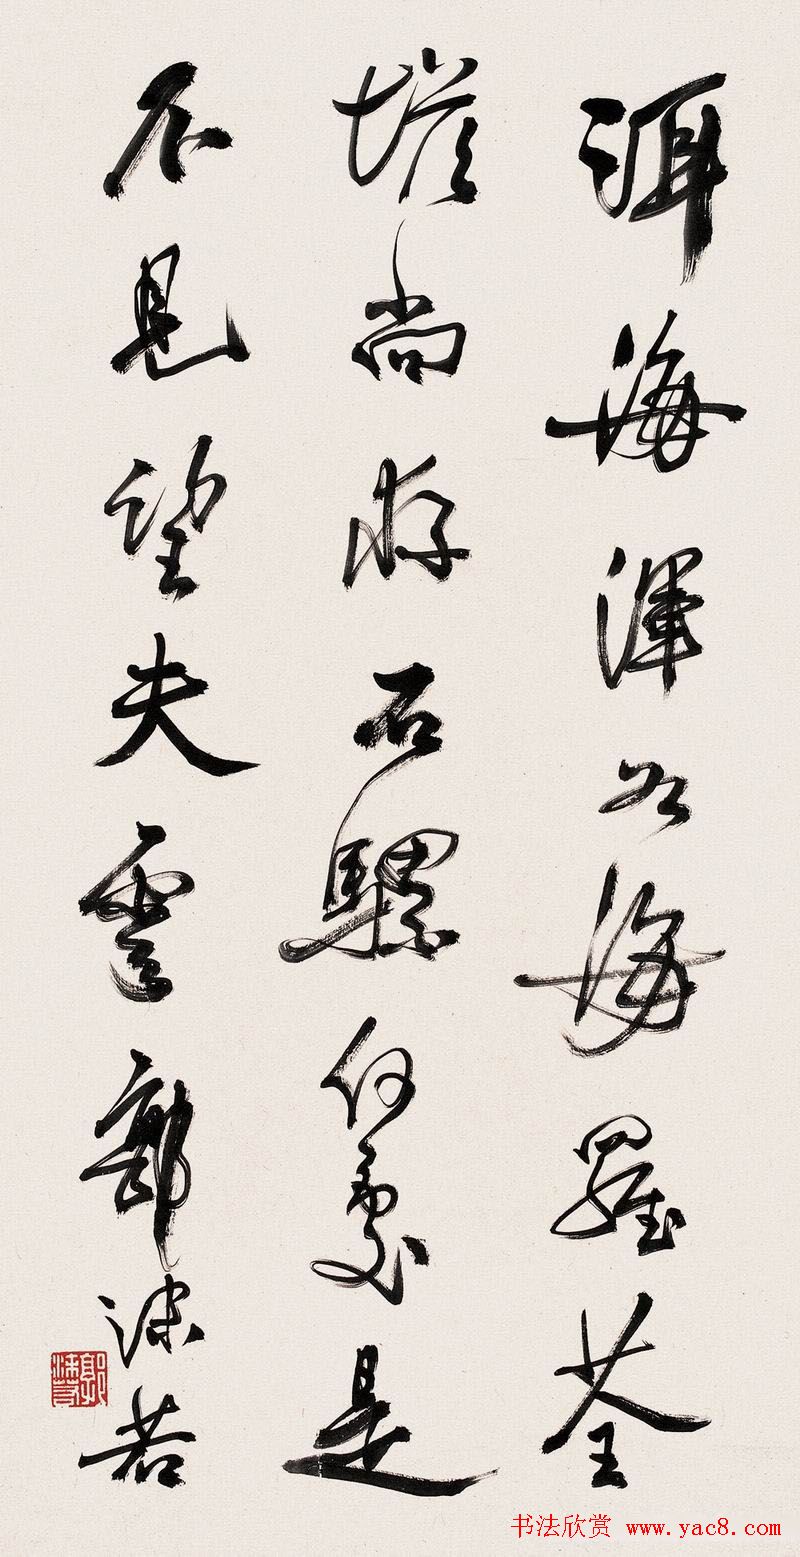 洱海渾如海羅荃
塔尚存石騾何處是
不見望夫雲郭沫若
郭沫若
书法欣赏 www.yac8.com